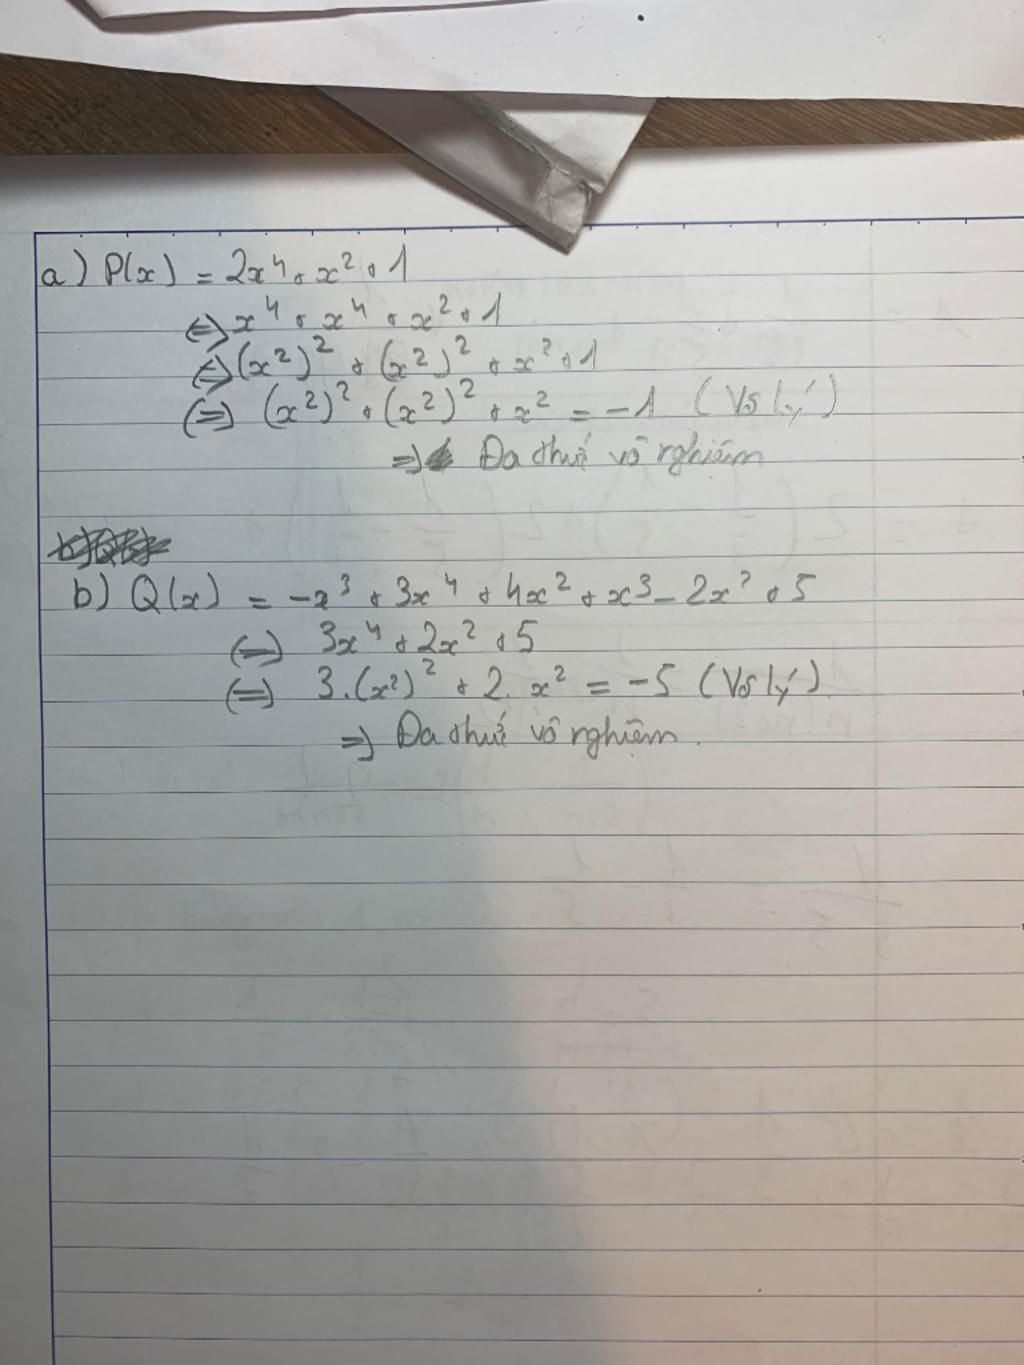 a) P(x) = 2x⁴ + x² + 1
⇔ x⁴ + x⁴ + x² + 1
⇔ (x²)² + (x²)² + x² + 1
⇔ (x²)² + (x²)² + x² = -1 (Vô lý)
⇒ Đa thức vô nghiệm
b) Q(x) = -x³ + 3x⁴ + 4x² + x³ - 2x² + 5
⇔ 3x⁴ + 2x² + 5
⇔ 3.(x²)² + 2. x² = -5 (Vô lý)
⇒ Đa thức vô nghiệm.